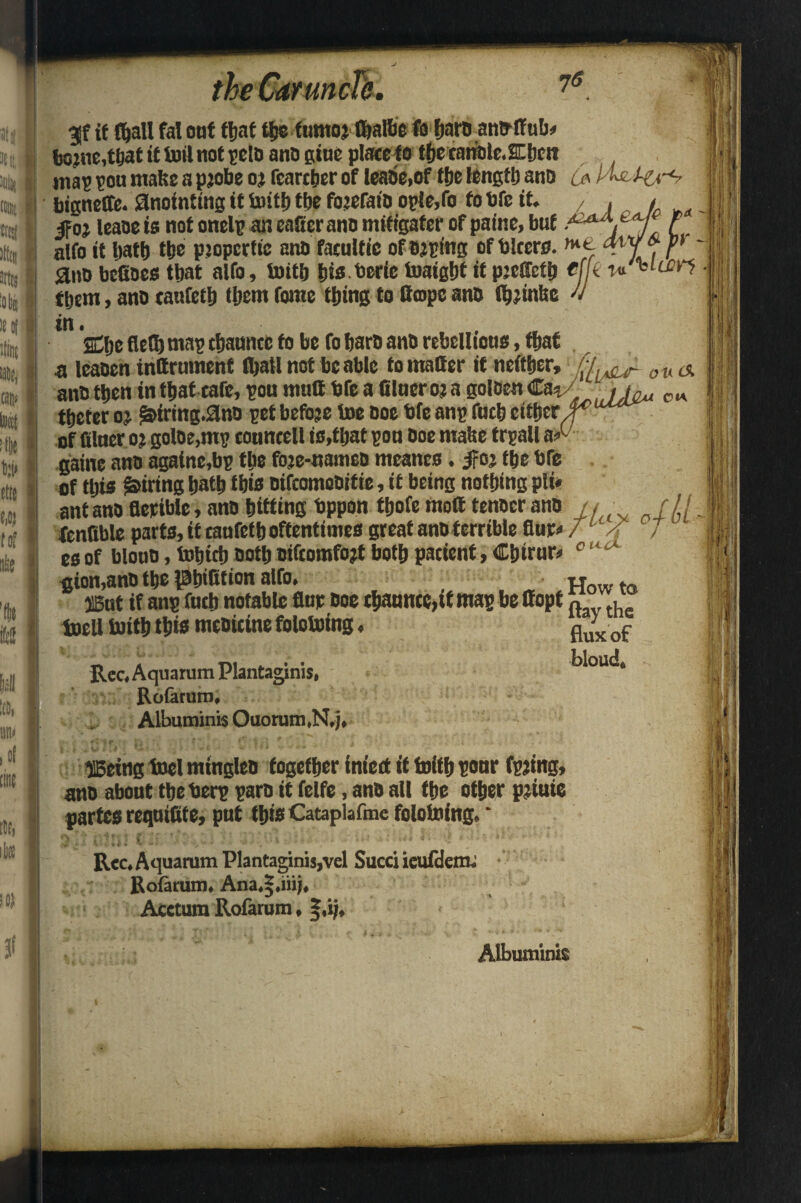 the Caruncle. 76.
If it shall fal out that the tumor shalbe so hard and stub-
borne, that it wil not yeld and giue place to the candle. Then
may you make a probe or searcher of leade, of the length and
bignesse. Anointing it with the foresaid oyle, so to vse it.
For leade is not onely an easier and mitigater of paine, but
also it hath the propertie and facultie of drying of vlcers.
And besides that also, with his verie waight it presseth
them, and causeth them some thing to stoope and shrinke
in.
The flesh may chaunce to be so hard and rebellious, that
a leaden instrument shall not be able to master it neither,
and then in that case, you must vse a siluer or a golden Ca-
theter or Siring. And yet before we doe vse any such either
of siluer or golde, my councell is, that you doe make tryall a-
gaine and againe, by the fore-named meanes. For the vse
of this Siring hath this discomoditie, it being nothing pli-
ant and flexible, and hitting vppon those most tender and
sensible parts, it causeth oftentimes great and terrible flux-
es of bloud, which doth discomfort both pacient, Chirur-
gion, and the Phisition also.
But if any such notable flux doe chaunce, it may be stopt
well with this medicine folowing.
How to
stay the
flux of
bloud.
Rec. Aquarum Plantaginis,
Rosarum.
Albuminis Ouorum, N.j.
Being wel mingled together iniect it with your spring,
and about the very yard it selfe, and all the other priuie
partes requisite, put this Cataplasme folowing.
Rec. Aquarum Plantaginis, vel Succi ieusdem.
Rosarum. Ana. ℥.iiij.
Acetum Rosarum, ℥.ij.
Albuminis